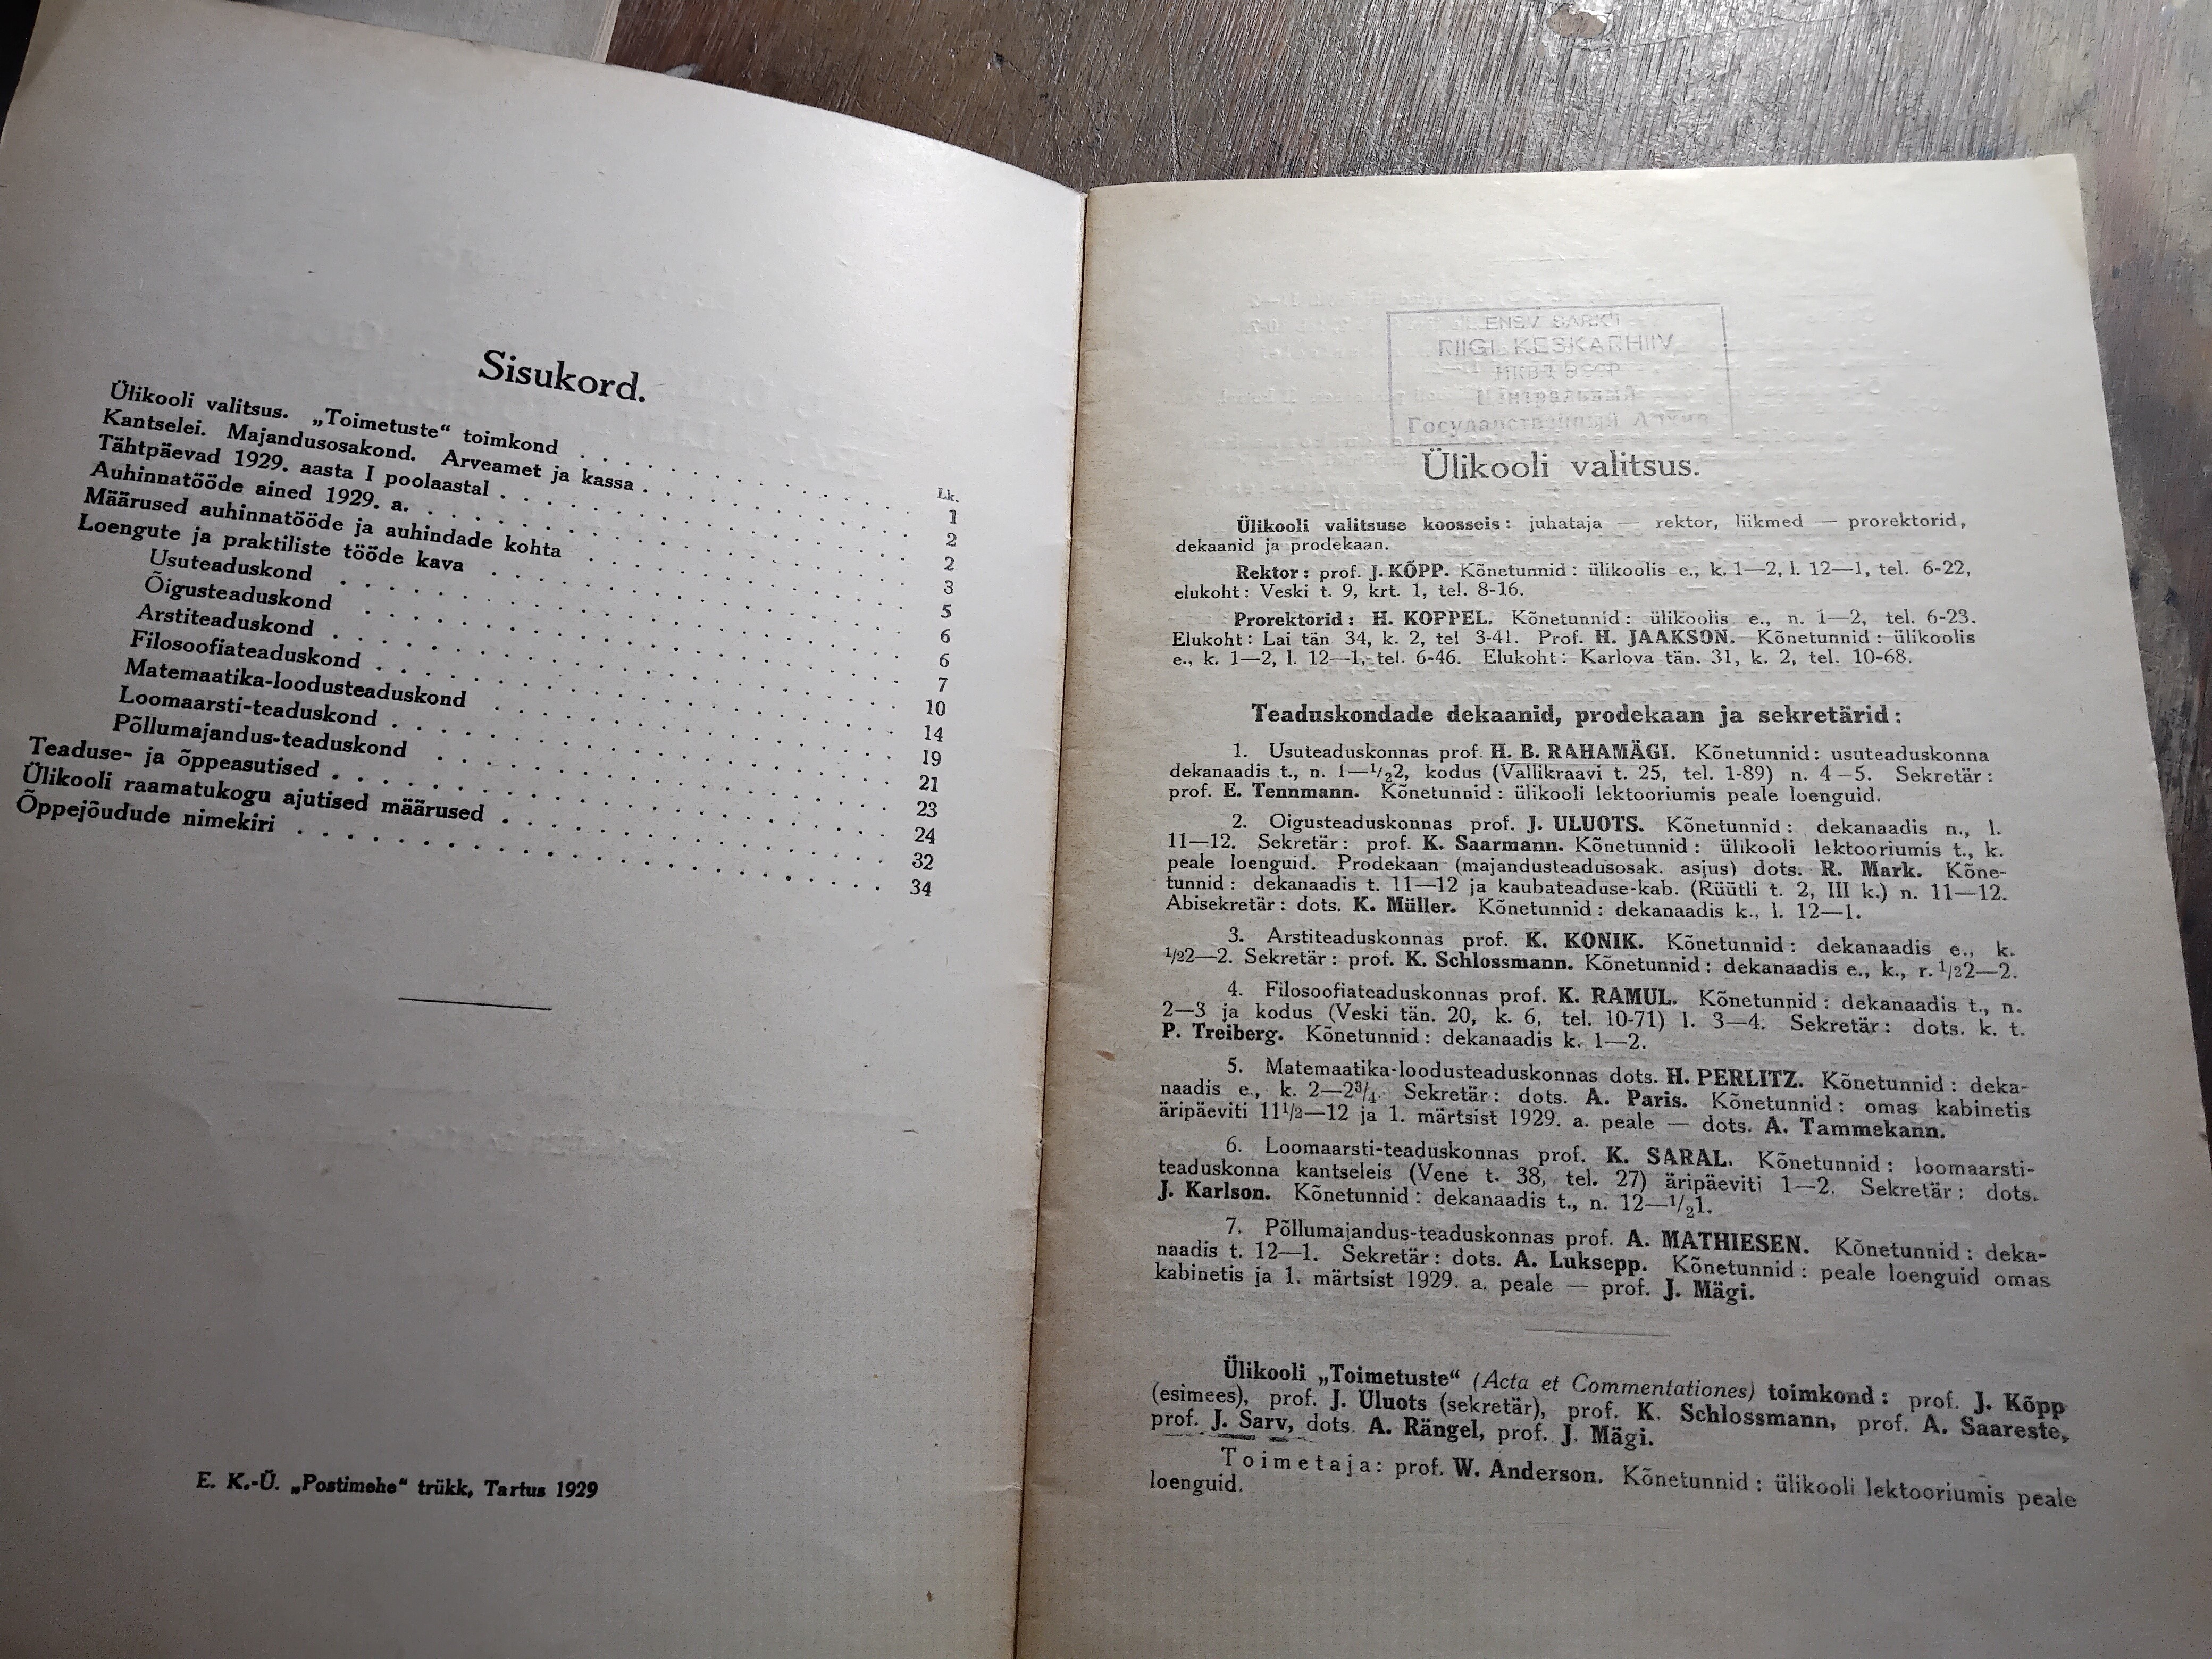 Sisukord.
Lk.
Ülikooli valitsus. „Toimetuste“ toimkond . . . . . . . . . . 1
Kantselei. Majandusosakond. Arveamet ja kassa . . . . . . . . . . 2
Tähtpäevad 1929. aasta I poolaastal . . . . . . . . . . 2
Auhinnatööde ained 1929. a. . . . . . . . . . . 3
Määrused auhinnatööde ja auhindade kohta . . . . . . . . . . 5
Loengute ja praktiliste tööde kava . . . . . . . . . . 6
Usuteaduskond . . . . . . . . . . 6
Õigusteaduskond . . . . . . . . . . 7
Arstiteaduskond . . . . . . . . . . 10
Filosoofiateaduskond . . . . . . . . . . 14
Matemaatika-loodusteaduskond . . . . . . . . . . 19
Loomaarsti-teaduskond . . . . . . . . . . 21
Põllumajandus-teaduskond . . . . . . . . . . 23
Teaduse- ja õppeasutised . . . . . . . . . . 24
Ülikooli raamatukogu ajutised määrused . . . . . . . . . . 32
Õppejõudude nimekiri . . . . . . . . . . 34
E. K.-Ü. „Postimehe“ trükk, Tartus 1929
ENSV SARK'i
RIIGI KESKARHIIV
НКВД ЭССР
Центральный
Государственный Архив
Ülikooli valitsus.
Ülikooli valitsuse koosseis: juhataja — rektor, liikmed — prorektorid,
dekaanid ja prodekaan.
Rektor: prof. J. KÕPP. Kõnetunnid: ülikoolis e., k. 1—2, l. 12—1, tel. 6-22,
elukoht: Veski t. 9, krt. 1, tel. 8-16.
Prorektorid: H. KOPPEL. Kõnetunnid: ülikoolis e., n. 1—2, tel. 6-23.
Elukoht: Lai tän 34, k. 2, tel 3-41. Prof. H. JAAKSON. Kõnetunnid: ülikoolis
e., k. 1—2, l. 12—1, tel. 6-46. Elukoht: Karlova tän. 31, k. 2, tel. 10-68.
Teaduskondade dekaanid, prodekaan ja sekretärid:
1. Usuteaduskonnas prof. H. B. RAHAMÄGI. Kõnetunnid: usuteaduskonna
dekanaadis t., n. 1—1/22, kodus (Vallikraavi t. 25, tel. 1-89) n. 4—5. Sekretär:
prof. E. Tennmann. Kõnetunnid: ülikooli lektooriumis peale loenguid.
2. Oigusteaduskonnas prof. J. ULUOTS. Kõnetunnid: dekanaadis n., l.
11—12. Sekretär: prof. K. Saarmann. Kõnetunnid: ülikooli lektooriumis t., k.
peale loenguid. Prodekaan (majandusteadusosak. asjus) dots. R. Mark. Kõne-
tunnid: dekanaadis t. 11—12 ja kaubateaduse-kab. (Rüütli t. 2, III k.) n. 11—12.
Abisekretär: dots. K. Müller. Kõnetunnid: dekanaadis k., l. 12—1.
3. Arstiteaduskonnas prof. K. KONIK. Kõnetunnid: dekanaadis e., k.
1/22—2. Sekretär: prof. K. Schlossmann. Kõnetunnid: dekanaadis e., k., r. 1/22—2.
4. Filosoofiateaduskonnas prof. K. RAMUL. Kõnetunnid: dekanaadis t., n.
2—3 ja kodus (Veski tän. 20, k. 6, tel. 10-71) l. 3—4. Sekretär: dots. k. t.
P. Treiberg. Kõnetunnid: dekanaadis k. 1—2.
5. Matemaatika-loodusteaduskonnas dots. H. PERLITZ. Kõnetunnid: deka-
naadis e., k. 2—2 3/4. Sekretär: dots. A. Paris. Kõnetunnid: omas kabinetis
äripäeviti 11 1/2—12 ja 1. märtsist 1929. a. peale — dots. A. Tammekann.
6. Loomaarsti-teaduskonnas prof. K. SARAL. Kõnetunnid: loomaarsti-
teaduskonna kantseleis (Vene t. 38, tel. 27) äripäeviti 1—2. Sekretär: dots.
J. Karlson. Kõnetunnid: dekanaadis t., n. 12—1/21.
7. Põllumajandus-teaduskonnas prof. A. MATHIESEN. Kõnetunnid: deka-
naadis t. 12—1. Sekretär: dots. A. Luksepp. Kõnetunnid: peale loenguid omas
kabinetis ja 1. märtsist 1929. a. peale — prof. J. Mägi.
Ülikooli „Toimetuste“ (Acta et Commentationes) toimkond: prof. J. Kõpp
(esimees), prof. J. Uluots (sekretär), prof. K. Schlossmann, prof. A. Saareste,
prof. J. Sarv, dots. A. Rängel, prof. J. Mägi.
Toimetaja: prof. W. Anderson. Kõnetunnid: ülikooli lektooriumis peale
loenguid.